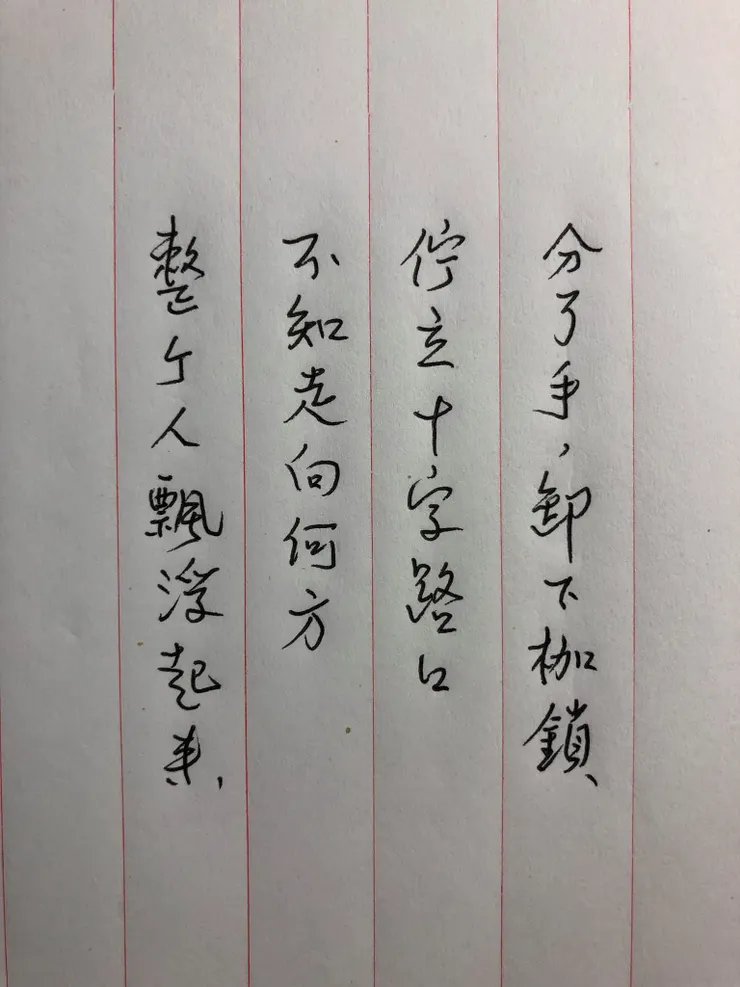 分了手，卸下枷鎖、
佇立十字路口
不知走向何方
整个人飄浮起来、